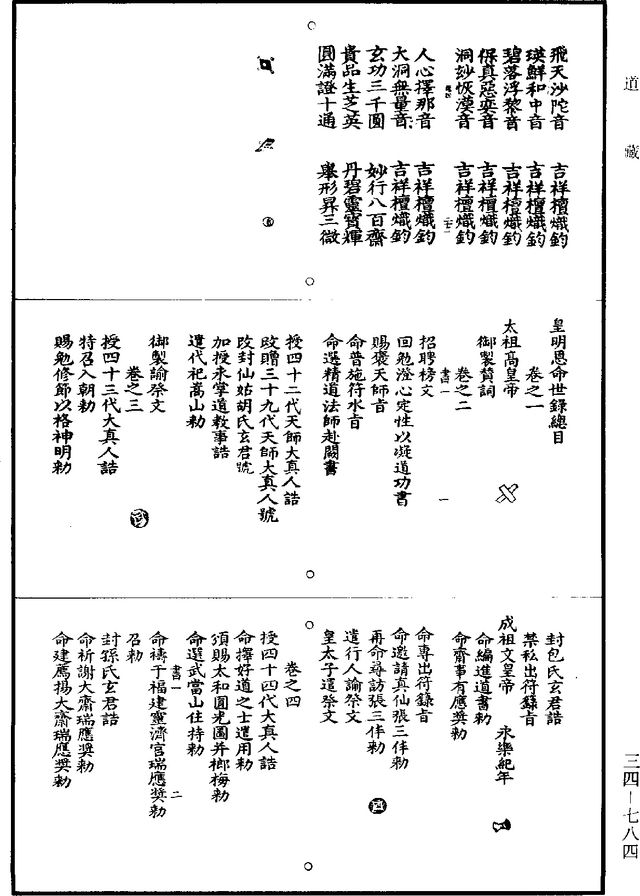 道藏
飛天沙陀音　吉祥檀熾鈞
瑛鮮和中音　吉祥檀熾鈞
碧落浮黎音　吉祥檀熾鈞
保真惡奕音　吉祥檀熾鈞
洞妙恢漠音　吉祥檀熾鈞
人心擇那音　吉祥檀熾鈞
大洞無量音　吉祥檀熾鈞
玄功三千圓　妙行八百齋
貴品生芝英　丹碧靈寶輝
圓滿證十通　舉形昇三微
皇明恩命世錄總目
卷之一
太祖高皇帝
御製贊詞
卷之二
書一　一
招聘榜文
回勉澄心定性以凝道功書
賜褒天師旨
命普施符水旨
命選精道法師赴闕書
授四十二代天師大真人誥
改贈三十九代天師大真人號
改封仙姑胡氏玄君號
加授永掌道教事誥
遣代祀嵩山勑
御製諭祭文
卷之三
授四十三代大真人誥
特召入朝勑
賜勉修節以格神明勑
封包氏玄君誥
禁私出符籙旨
成祖文皇帝　永樂紀年
命編進道書勑
命齋事有應獎勑
命專出符籙旨
命邀請真仙張三伴勑
再命尋訪張三伴勑
遣行人諭祭文
皇太子遣祭文
卷之四
授四十四代大真人誥
命擇好道之士進用勑
頒賜太和圓光圖并榔梅勑
命選武當山住持勑
書一　二
命禱于福建靈濟宮瑞應獎勑
召勑
封孫氏玄君誥
命祈謝大齋瑞應獎勑
命建薦揚大齋瑞應獎勑
三四—七八四